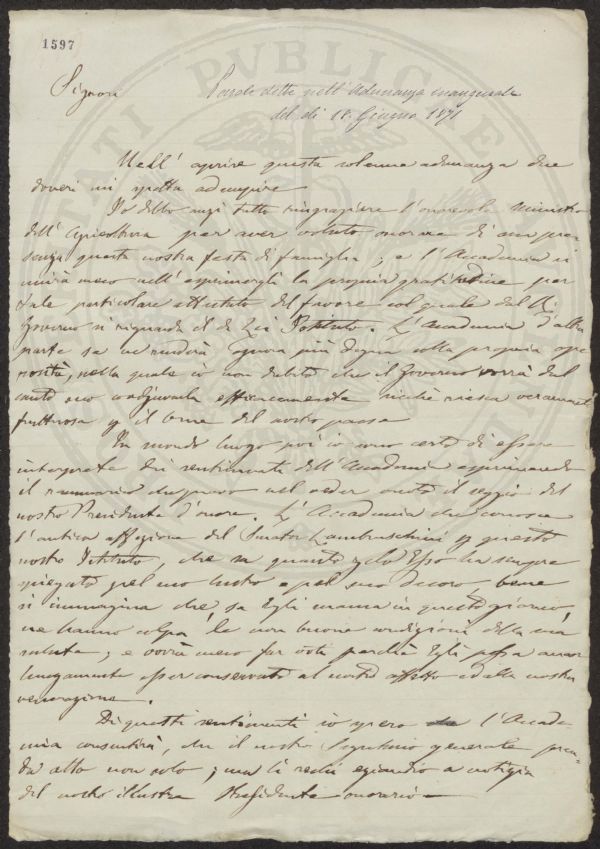 1597
Signori
Parole dette nell'Adunanza inaugurale
del dì 18 Giugno 1871
Nell'aprire questa solenne adunanza due
doveri mi spetta adempire
Io debbo anzi tutto ringraziare l'onorevole Ministro
dell'Agricoltura per aver voluto onorare di sua pre-
senza questa nostra festa di famiglia; e l'Accademia si
unirà meco nell'esprimergli la propria gratitudine per
tale particolare attestato del favore col quale dal R.
Governo si riguarda il di Lei Istituto. L'Accademia d'altra
parte se ne renderà ognora più degna colla propria ope-
rosità, nella quale io non dubito che il Governo vorrà dal
canto suo coadjuvarla efficacemente sicchè riesca veramente
fruttuosa pel bene del nostro paese
In secondo luogo poi io sono certo di essere
interprete dei sentimenti dell'Accademia esprimendo
il rammarico che provo nel veder vuoto il seggio del
nostro Presidente d'onore. L'Accademia che conosce
l'antica affezione del Senator Lambruschini per questo
nostro Istituto, che sa quanto zelo Esso ha sempre
spiegato pel suo lustro e pel suo decoro, bene
si immagina che, se Egli manca in questo giorno,
ne hanno colpa le non buone condizioni della sua
salute; e vorrà meco far voti perchè Egli possa ancor
lungamente esser conservato al nostro affetto ed alla nostra
venerazione.
Di questi sentimenti io spero che l'Accade-
mia consentirà, che il nostro Segretario generale pren-
da atto non solo; ma li rechi eziandio a notizia
del nostro illustre Presidente onorario—